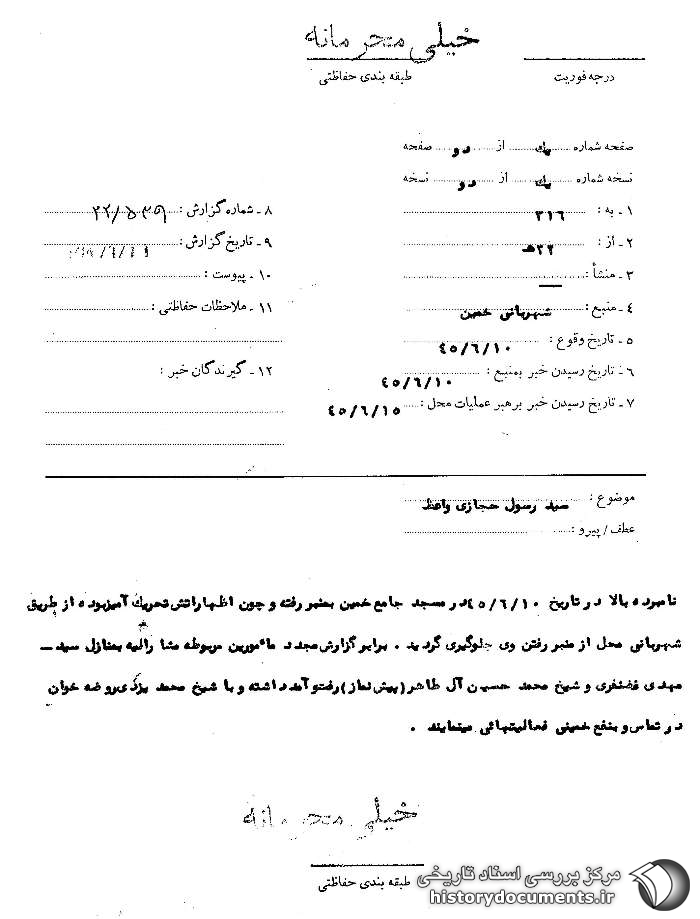 خیلی محرمانه
درجه فوریت
طبقه بندی حفاظتی
صفحه شماره یک از دو صفحه
نسخه شماره یک از دو نسخه
۱ـ به : ۳۱۶
۲ـ از : ۲۲ هـ
۳ـ منشأ :
۴ـ منبع : شهربانی خمین
۵ـ تاریخ وقوع : ۴۵/۶/۱۰
۶ـ تاریخ رسیدن خبر بمنبع : ۴۵/۶/۱۰
۷ـ تاریخ رسیدن خبر برهبر عملیات محل : ۴۵/۶/۱۵
۸ـ شماره گزارش :
۹ـ تاریخ گزارش :
۱۰ـ پیوست :
۱۱ـ ملاحظات حفاظتی :
۱۲ـ گیرندگان خبر :
موضوع : سید رسول حجازی واعظ
عطف/پیرو :
نامبرده بالا در تاریخ ۴۵/۶/۱۰ در مسجد جامع خمین بمنبر رفته و چون اظهاراتش تحریک آمیز بوده از طریق
شهربانی محل از منبر رفتن وی جلوگیری گردید . برابر گزارش مجدد مأمورین مربوطه مشارالیه بمنازل سید ـ
مهدی غضنفری و شیخ محمد حسین آل طاهر (پیش نماز) رفت و آمد داشته و با شیخ محمد یزدی روضه خوان
در تماس و بنفع خمینی فعالیتهائی مینمایند .
خیلی محرمانه
طبقه بندی حفاظتی
مرکز بررسی اسناد تاریخی
historydocuments.ir